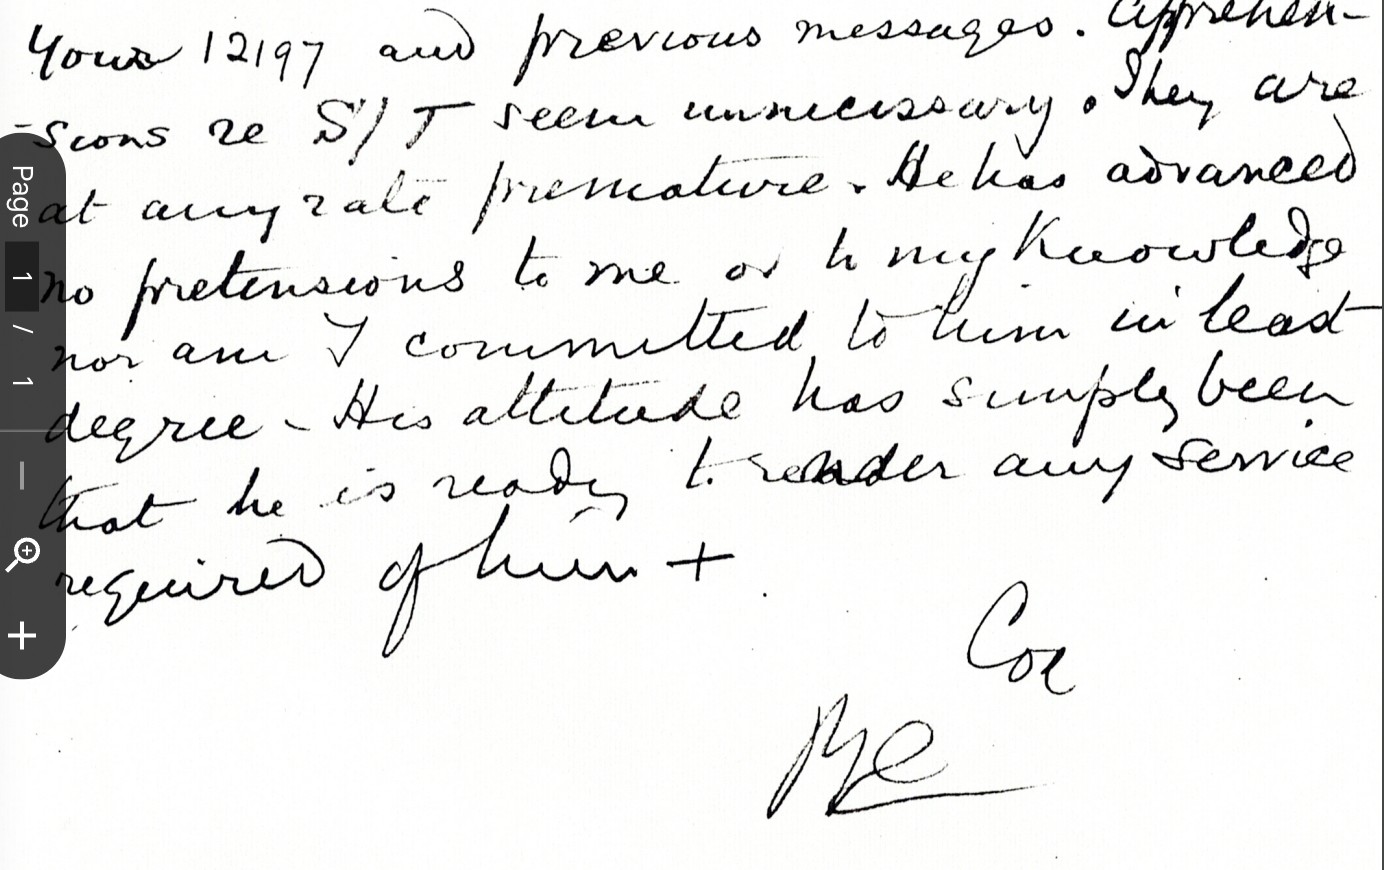 Yours 12197 and previous messages. Apprehen-
-sions re S/T seem unnecessary. They are
at any rate premature. He has advanced
no pretensions to me or to my knowledge
nor am I committed to him in least
degree - His attitude has simply been
that he is ready to render any service
required of him +
Cox
Page 1 / 1